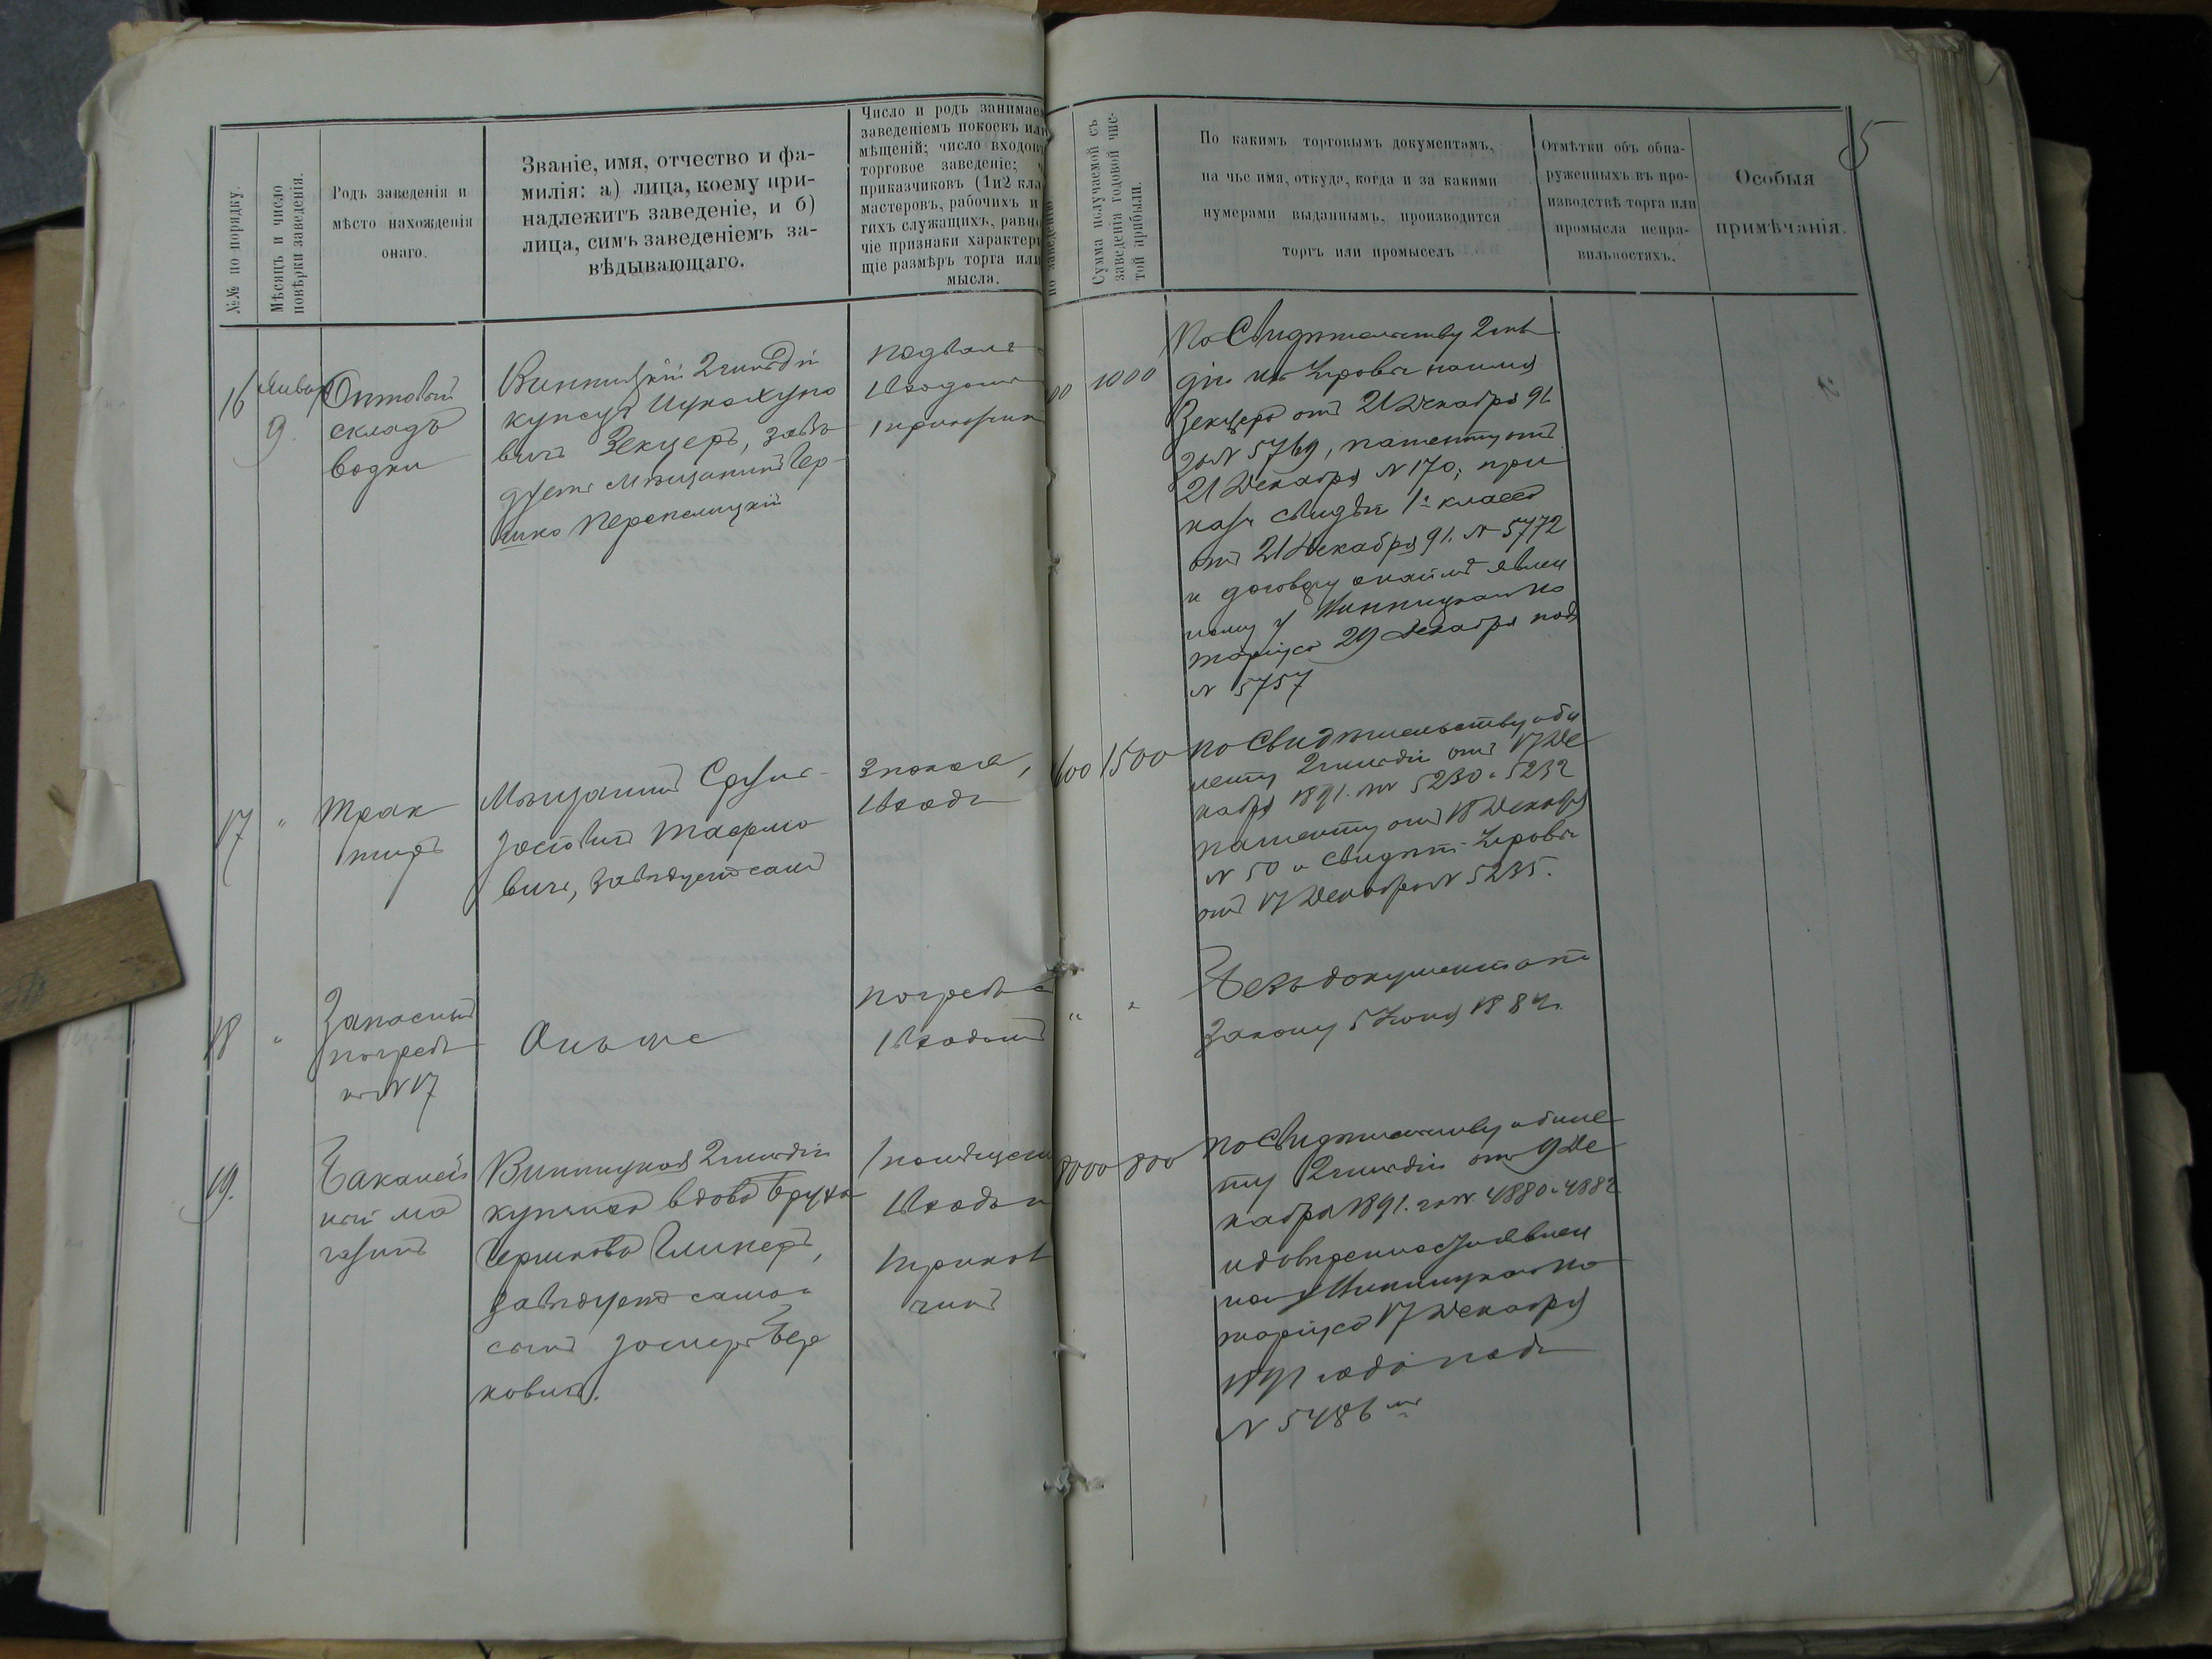 5
№№ по порядку.
Мѣсяцъ и число
повѣрки заведенія.
Родъ заведенія и
мѣсто нахожденія
онаго.
Званіе, имя, отчество и фа-
милія: а) лица, коему при-
надлежитъ заведеніе, и б)
лица, симъ заведеніемъ за-
вѣдывающаго.
Число и родъ занимаем
заведеніемъ покоевъ или
мѣщеній; число входовъ
торговое заведеніе; ч
приказчиковъ (1 и 2 кла
мастеровъ, рабочихъ и
гихъ служащихъ, равно
чіе признаки характери
щіе размѣръ торга или
мысла.
по заведенію
Сумма получаемой съ
заведенія годовой чис-
той прибыли.
По какимъ торговымъ документамъ,
на чье имя, откуда, когда и за какими
нумерами выданнымъ, производится
торгъ или промыселъ
Отмѣтки объ обна-
руженныхъ въ про-
изводствѣ торга или
промысла непра-
вильностяхъ.
Особыя
примѣчанія.
16
Январ
9.
Оптовый
складъ
водки
Винницкій 2 гильдіи
купецъ
Зекцеръ, завѣ
дуетъ мѣщанинъ Бер-
ко Перепелицкій
Подвалъ
1 входомъ
1 прикащик
00
1000
По Свидѣтельству 2 гил
діи
Зекцера отъ 21 Декабря 91
за N 5769, патенту отъ
21 Декабря N 170, при
каз. свидѣт. 1го класса
отъ 21 Декабря 91. N 5772
и договору о наймѣ явлен
ному у Винницкаго Но
таріуса 29 Декабря подъ
N 5757
17
"
Трак
тиръ
Мѣщанинъ
вичъ, завѣдуетъ самъ
2 покоя,
1 входъ
600
1500
по Свидѣтельству и би
лету 2 гильдіи отъ 17 Де
кабря 1891. NN 5230 и 5232
патенту отъ 18 Декабря
N 50 и свидѣт.
отъ 17 Декабря N 5235.
18
"
Запасный
погребъ
къ N 17
Онъ же
погребъ с
1 входомъ
"
"
Безъ документа по
закону 5 Іюня 1884 г.
19.
Бакалей
ный ма
газинъ
Винницкая 2 гильдіи
купчиха вдова Бруха
завѣдуетъ сама и
сынъ
ковичъ.
1 помѣщен
1 входъ и
1 прикащ
чикъ
8000
800
по Свидѣтельству и биле
ту 2 гильдіи отъ 9 Де
кабря 1891. за N. 4880 и 4882
и довѣренности явлен
ной у Винницкаго Но
таріуса 17 Декабря
1891 года подъ
N 5486